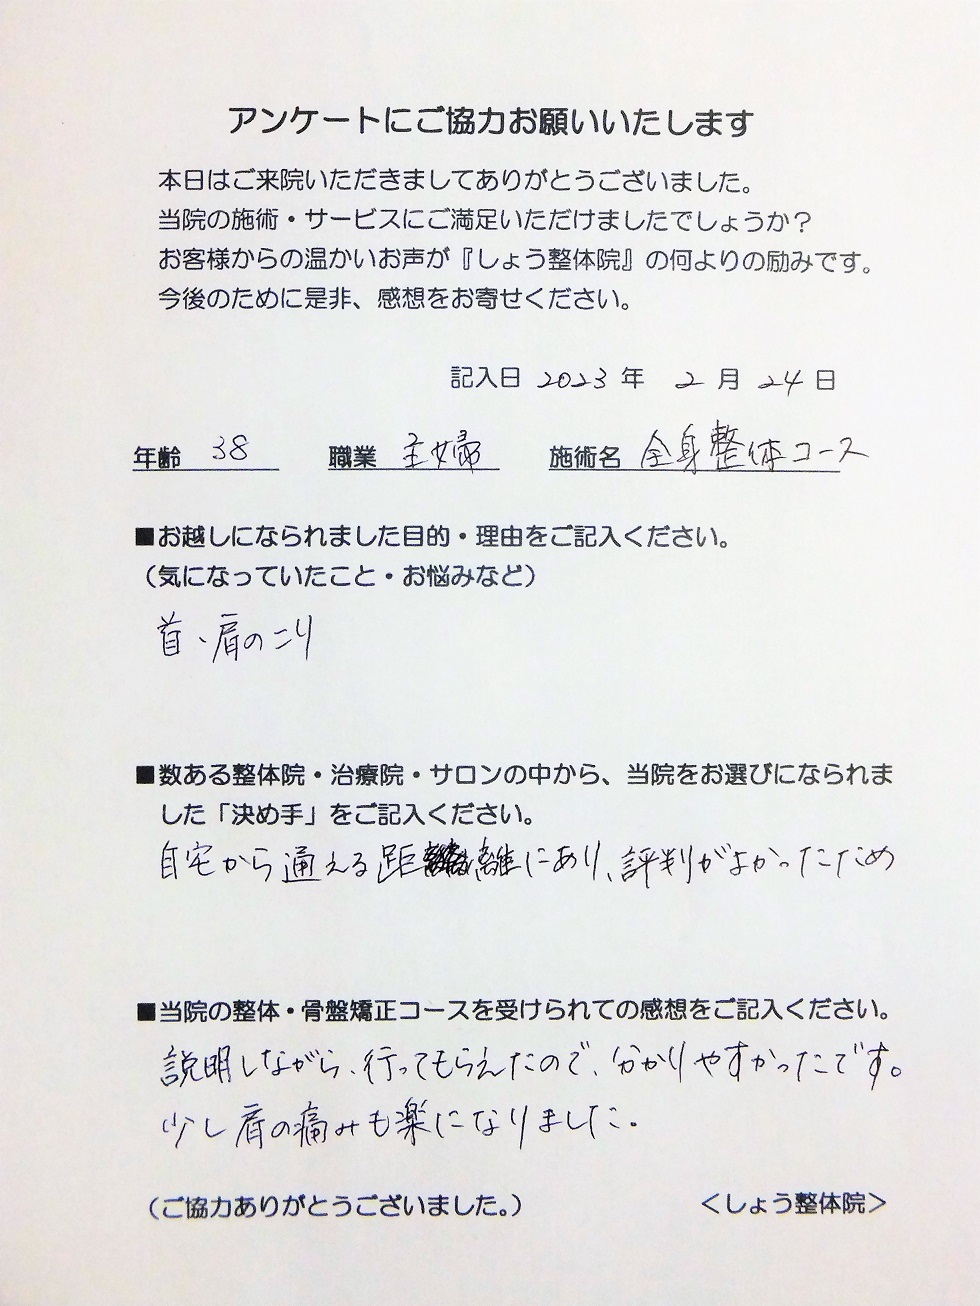 アンケートにご協力お願いいたします
本日はご来院いただきましてありがとうございました。
当院の施術・サービスにご満足いただけましたでしょうか？
お客様からの温かいお声が『しょう整体院』の何よりの励みです。
今後のために是非、感想をお寄せください。
記入日 2023 年 2 月 24 日
年齢 38 職業 主婦 施術名 全身整体コース
■お越しになられました目的・理由をご記入ください。
（気になっていたこと・お悩みなど）
首、肩のこり
■数ある整体院・治療院・サロンの中から、当院をお選びになられま
した「決め手」をご記入ください。
自宅から通える距離にあり、評判がよかったため
■当院の整体・骨盤矯正コースを受けられての感想をご記入ください。
説明しながら、行ってもらえたので、分かりやすかったです。
少し肩の痛みも楽になりました。
（ご協力ありがとうございました。） ＜しょう整体院＞